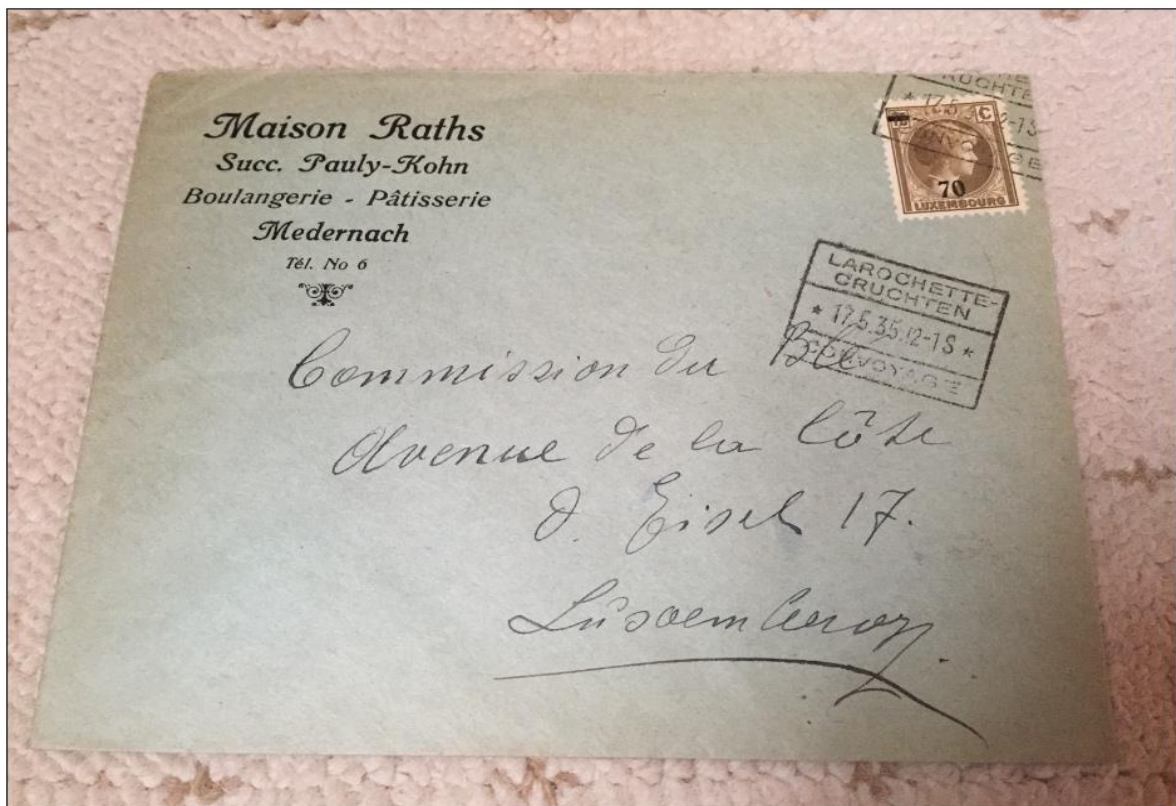 Maison Raths
Succ. Pauly-Kohn
Boulangerie - Pâtisserie
Medernach
Tél. No 6
RUCHTE
* 17.5.3 12-1S
C
70
LUXEMBOURG
LAROCHETTE-
CRUCHTEN
* 17.5.35.12-1S *
CONVOYAGE
Commission du Blé
Avenue de la Côte
d. Eisch 17.
Luxembourg.